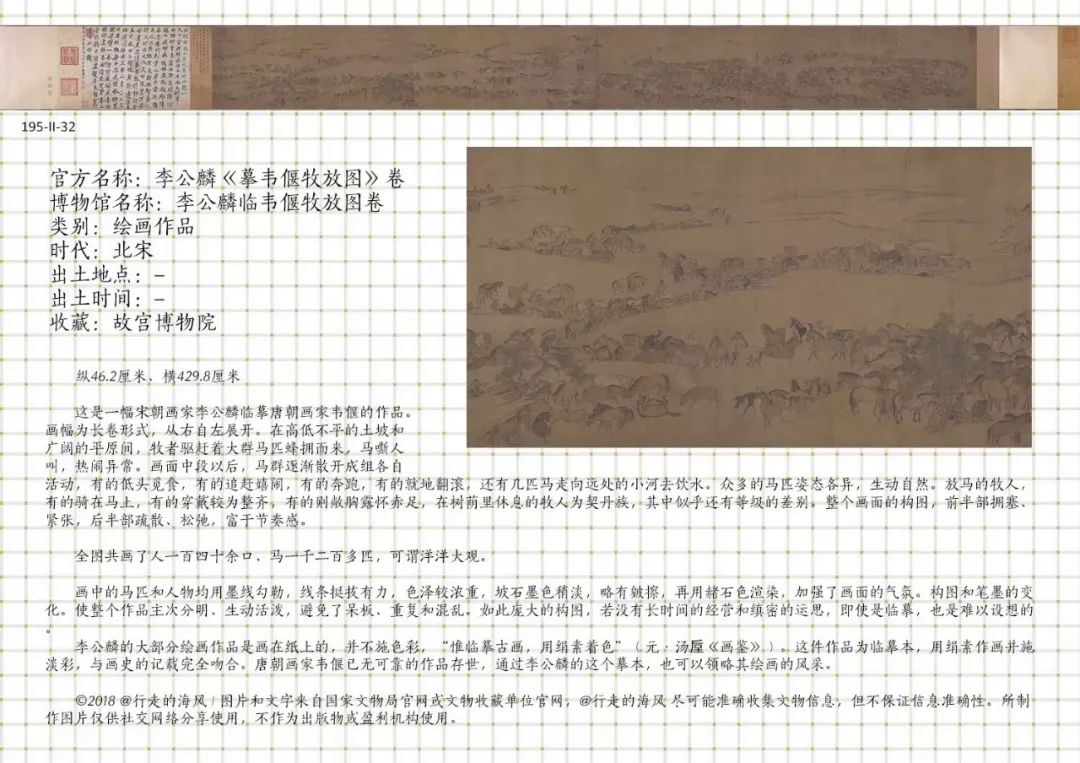 195-II-32
官方名称：李公麟《摹韦偃牧放图》卷
博物馆名称：李公麟临韦偃牧放图卷
类别：绘画作品
时代：北宋
出土地点：–
出土时间：–
收藏：故宫博物院
纵46.2厘米、横429.8厘米
这是一幅宋朝画家李公麟临摹唐朝画家韦偃的作品。
画幅为长卷形式，从右自左展开。在高低不平的土坡和
广阔的平原间，牧者驱赶着大群马匹蜂拥而来，马嘶人
叫，热闹异常。画面中段以后，马群逐渐散开成组各自
活动，有的低头觅食，有的追赶嬉闹，有的奔跑，有的就地翻滚，还有几匹马走向远处的小河去饮水。众多的马匹姿态各异，生动自然。放马的牧人，
有的骑在马上，有的穿戴较为整齐，有的则敞胸露怀赤足，在树荫里休息的牧人为契丹族，其中似乎还有等级的差别。整个画面的构图，前半部拥塞、
紧张，后半部疏散、松弛，富于节奏感。
全图共画了人一百四十余口、马一千二百多匹，可谓洋洋大观。
画中的马匹和人物均用墨线勾勒，线条挺拔有力，色泽较浓重，坡石墨色稍淡，略有皴擦，再用赭石色渲染，加强了画面的气氛。构图和笔墨的变
化。使整个作品主次分明、生动活泼，避免了呆板、重复和混乱。如此庞大的构图，若没有长时间的经营和缜密的运思，即使是临摹，也是难以设想的
。
李公麟的大部分绘画作品是画在纸上的，并不施色彩，“惟临摹古画，用绢素着色”（元·汤垕《画鉴》）。这件作品为临摹本，用绢素作画并施
淡彩，与画史的记载完全吻合。唐朝画家韦偃已无可靠的作品存世，通过李公麟的这个摹本，也可以领略其绘画的风采。
©2018 @行走的海风 | 图片和文字来自国家文物局官网或文物收藏单位官网，@行走的海风 尽可能准确收集文物信息，但不保证信息准确性。所制
作图片仅供社交网络分享使用，不作为出版物或盈利机构使用。